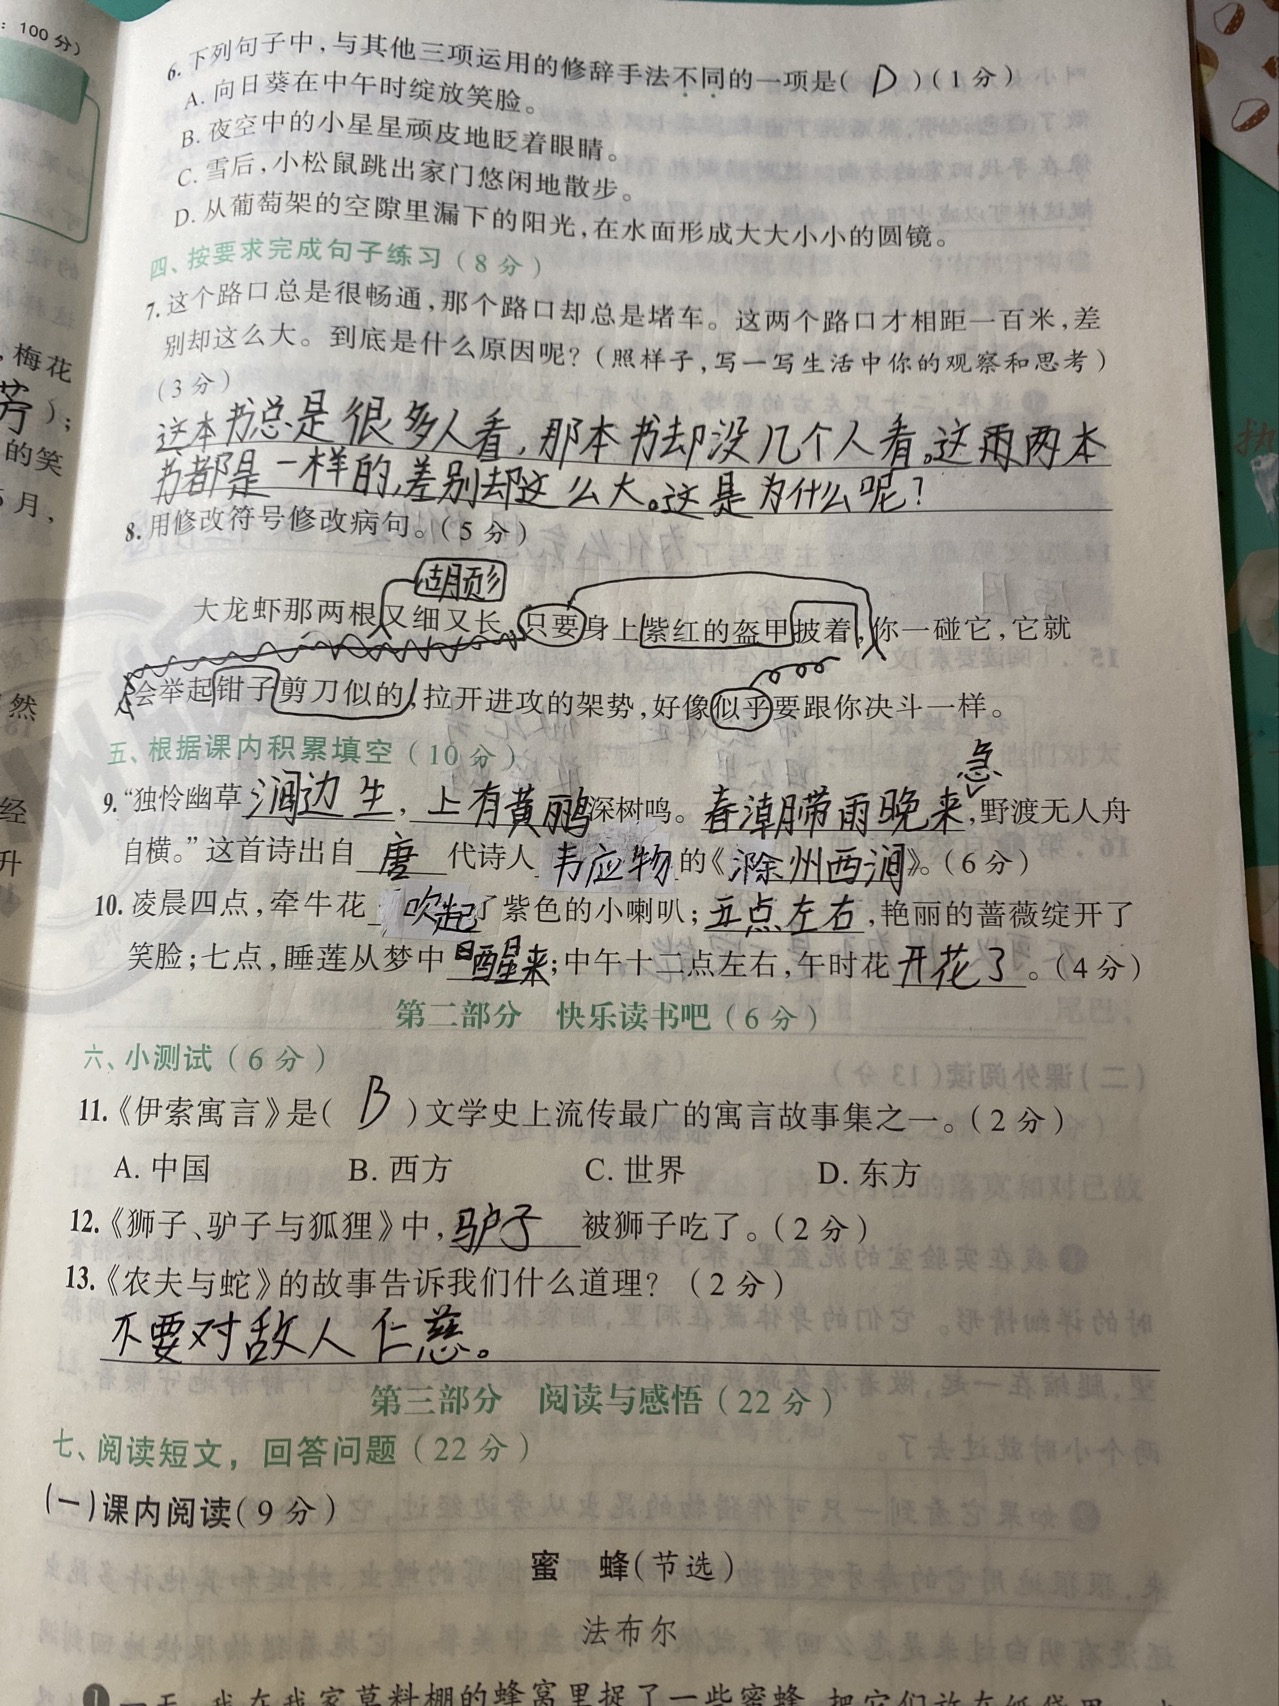 ：100分）
6.下列句子中，与其他三项运用的修辞手法不同的一项是( D )(1分)
A.向日葵在中午时绽放笑脸。
B.夜空中的小星星顽皮地眨着眼睛。
C.雪后，小松鼠跳出家门悠闲地散步。
D.从葡萄架的空隙里漏下的阳光，在水面形成大大小小的圆镜。
四、按要求完成句子练习(8分)
7.这个路口总是很畅通，那个路口却总是堵车。这两个路口才相距一百米，差
别却这么大。到底是什么原因呢？(照样子，写一写生活中你的观察和思考)
(3分)
这本书总是很多人看，那本书却没几个人看。这两本
书都是一样的，差别却这么大。这是为什么呢？
8.用修改符号修改病句。(5分)
胡须
大龙虾那两根又细又长，只要身上紫红的盔甲披着，你一碰它，它就
会举起钳子剪刀似的，拉开进攻的架势，好像似乎要跟你决斗一样。
五、根据课内积累填空(10分)
急
9.“独怜幽草涧边生，上有黄鹂深树鸣。春潮带雨晚来，野渡无人舟
自横。”这首诗出自唐代诗人韦应物的《滁州西涧》。(6分)
10.凌晨四点，牵牛花吹起了紫色的小喇叭；五点左右，艳丽的蔷薇绽开了
笑脸；七点，睡莲从梦中醒来；中午十二点左右，午时花开花了。(4分)
第二部分 快乐读书吧(6分)
六、小测试(6分)
11.《伊索寓言》是( B )文学史上流传最广的寓言故事集之一。(2分)
A.中国 B.西方 C.世界 D.东方
12.《狮子、驴子与狐狸》中，驴子被狮子吃了。(2分)
13.《农夫与蛇》的故事告诉我们什么道理？(2分)
不要对敌人仁慈。
第三部分 阅读与感悟(22分)
七、阅读短文，回答问题(22分)
(一)课内阅读(9分)
蜜 蜂(节选)
法布尔
❶一天，我在我家草料棚的蜂窝里捉了一些蜜蜂，把它们放在纸袋里
，梅花
芳）；
的笑
月，
然
经
升